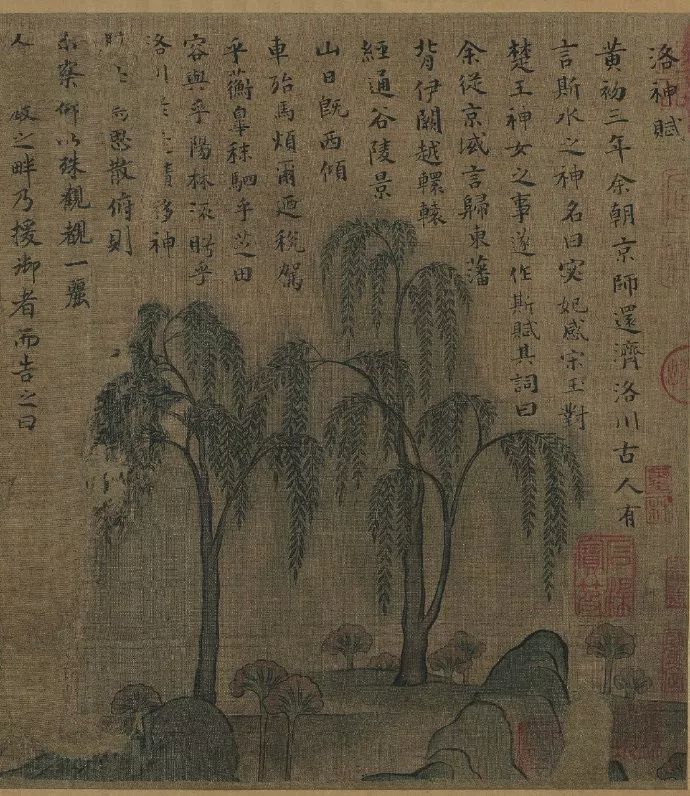 洛神賦
黄初三年余朝京師還濟洛川古人有
言斯水之神名曰宓妃感宋玉對
楚王神女之事遂作斯賦其詞曰
余從京域言歸東藩
背伊闕越轘轅
經通谷陵景
山日既西傾
車殆馬煩爾迺稅駕
乎蘅皋秣駟乎芝田
容與乎陽林流眄乎
洛川於精移神
思散俯則
未察仰以殊觀覩一麗
人之畔乃援御者而告之曰